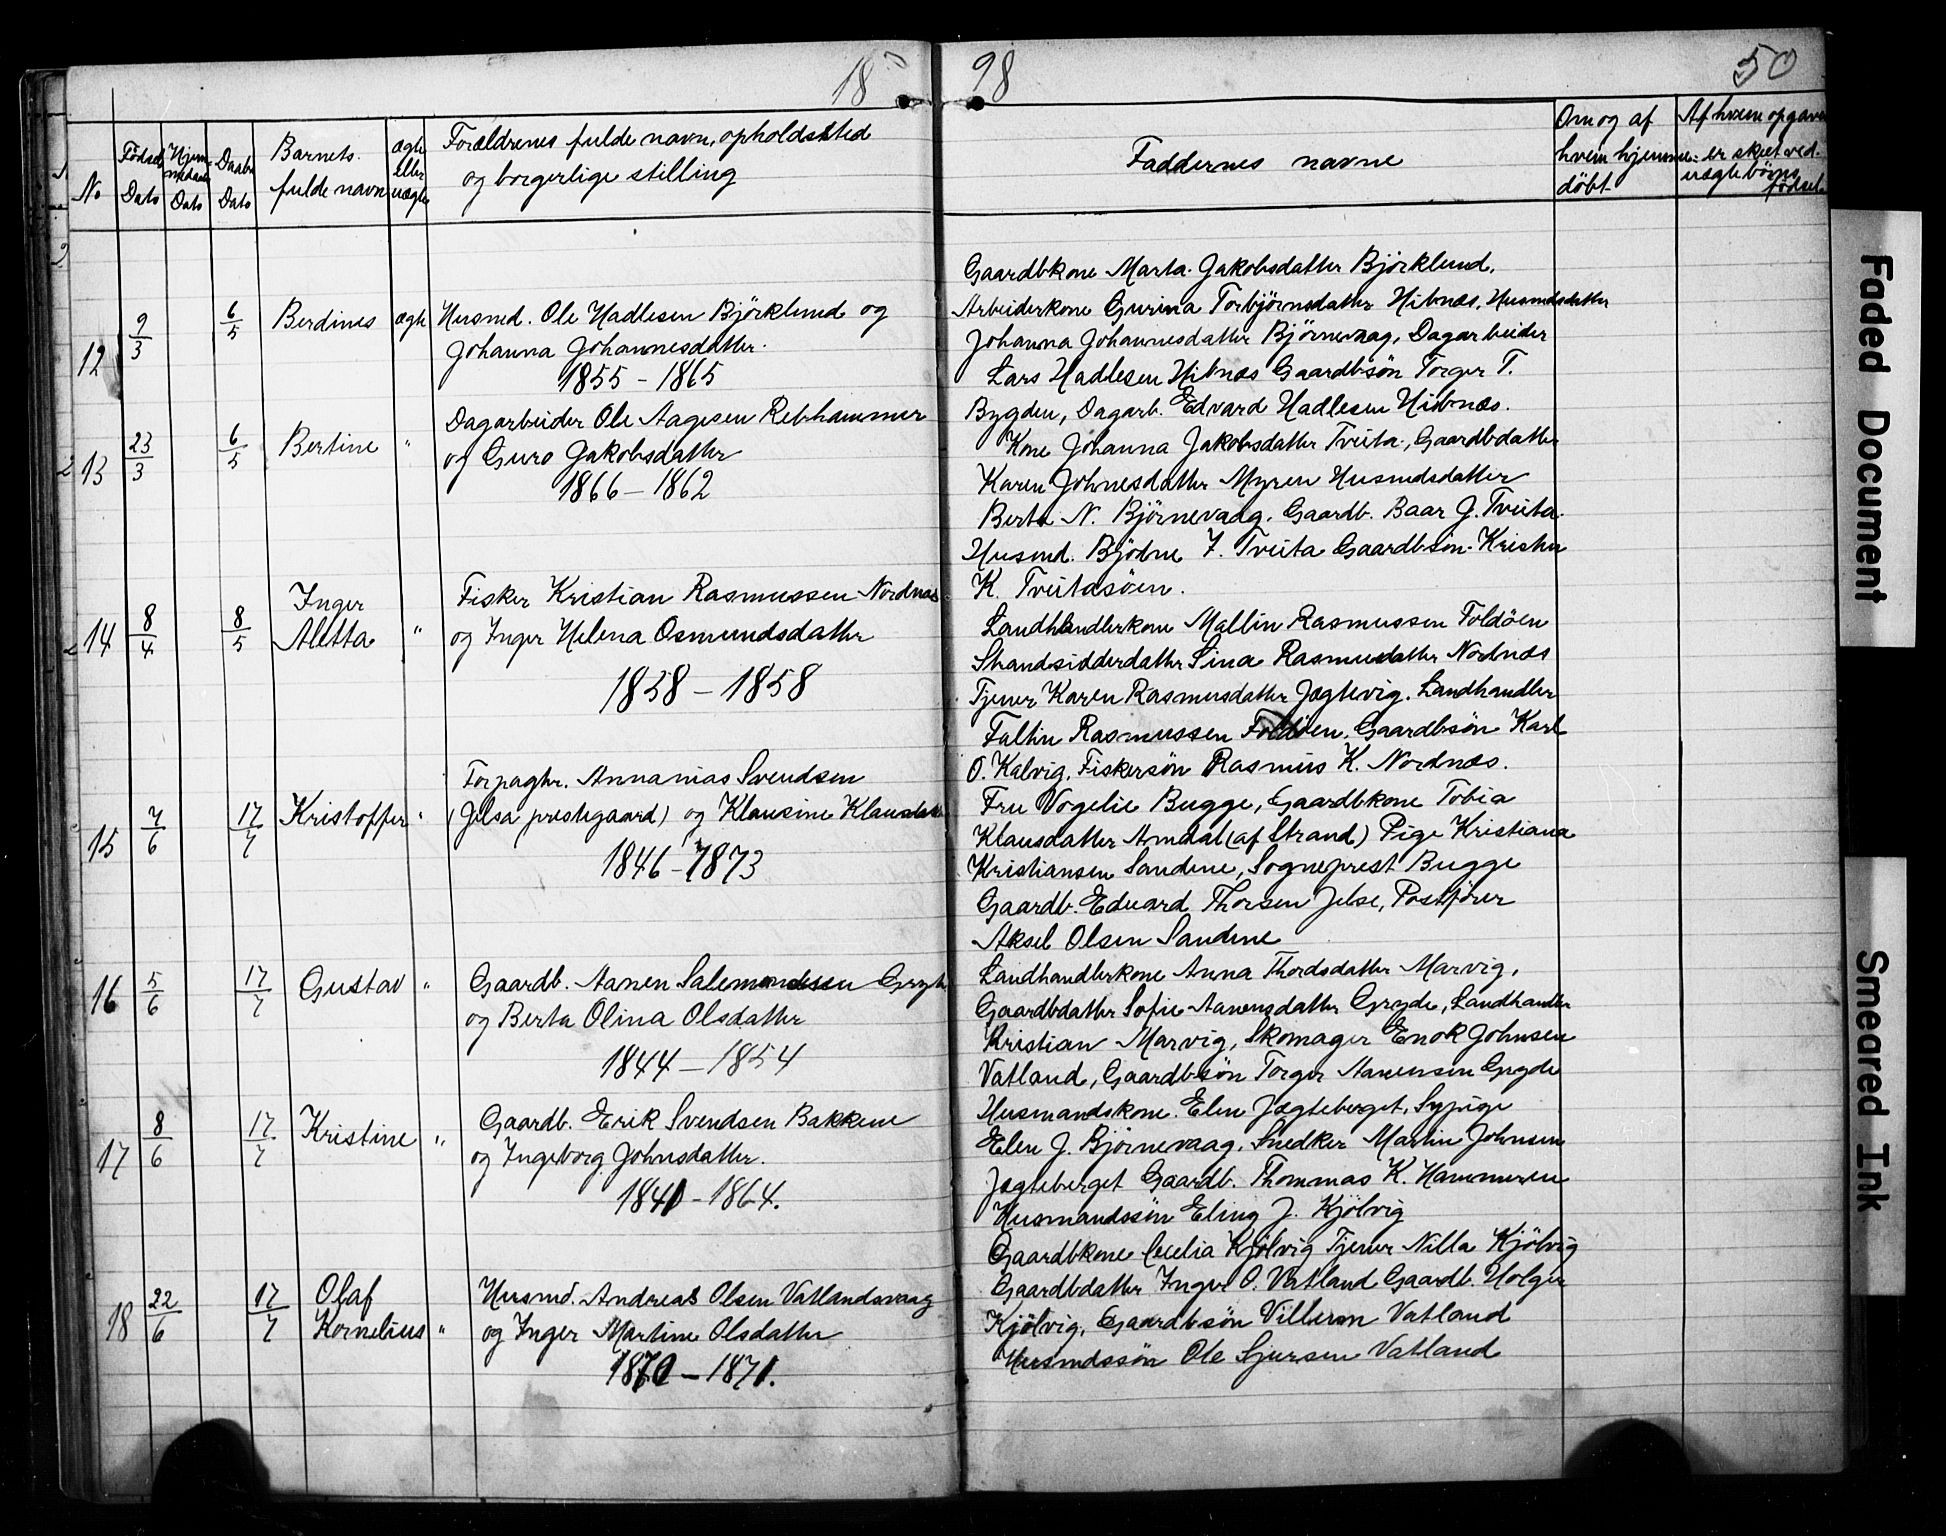 18
98
50
No
Fødsels Dato
Hjemmedaabs Dato
Daabs Dato
Barnets fulde navn
ægte eller uægte
Forældrenes fulde navn, opholdssted
og borgerlige stilling
Faddernes navne
Om og af
hvem hjemme-
döbt.
Af hvem opgaven
er skret ved
uægte börns
födsel
12
9/3
6/5
Berdines
ægte
Husmd. Ole Hadlesen Björklund og
Johanna Johannesdatter.
1855 - 1865
Gaardbkone Marta Jakobsdatter Björklund,
Arbeiderkone Gurina Torbjörnsdatter Hibnæs, Husmdsdatter
Johanna Johannesdatter Bjørnevaag, Dagarbeider
Lars Hadlesen Hibnæs Gaardbsön Torger T.
Bygden, Dagarb. Edvard Hadlesen Hibnæs.
13
23/3
6/5
Bertine
"
Dagarbeider Ole Aagesen Rebhammer
og Guro Jakobsdatter
1866 - 1862
Kone Johanna Jakobsdatter Tveita, Gaardbdatter
Karen Johnesdatter Myren Husmdsdatter
Berta N. Bjørnevaag, Gaardb. Baar J. Tveita.
Husmd. Bjödne J. Tveita Gaardbsön Kristen
K. Tveitasöen.
14
8/4
8/5
Inger
Aletta
"
Fisker Kristian Rasmussen Nordnæs
og Inger Helena Osmundsdatter
1858 - 1858
Landhandlerkone Mallin Rasmussen Foldöen
Strandsidderdatter Sina Rasmusdatter Nordnæs
Tjener Karen Rasmusdatter Jægtevig. Landhandler
Faltin Rasmussen Foldöen, Gaardbsön Karl
O. Kalvig, Fiskersön Rasmus K. Nordnæs.
15
7/6
17/7
Kristoffer
"
Forpagter. Annanias Svendsen
(Jelsa prestegaard) og Klausine Klausdatter
1846 - 1873
Fru Vogelie Bugge, Gaardbkone Tobia
Klausdatter Amdal (af Strand) Pige Kristiana
Kristiansen Sandene, Sogneprest Bugge
Gaardb. Edvard Thorsen Jelse, Postfører
Aksel Olsen Sandene
16
5/6
17/7
Gustav
"
Gaardb. Aanen Salemonsen Gryde
og Berta Olina Olsdatter
1844 - 1854
Landhandlerkone Anna Thordsdatter Marvig,
Gaardbdatter Sofie Aanensdatter Gryde, Landhandler
Kristian Marvig, Skomager Enok Johnsen
Vatland, Gaardbsön Torger Aanensen Gryde
17
8/6
17/7
Kristine
"
Gaardb. Erik Svendsen Bakkene
og Ingeborg Johnsdatter.
1841 - 1864.
Husmandskone Elen Jægteberget, Sypige
Elen J. Bjørnevaag, Snedker Martin Johnsen
Jægteberget Gaardb. Thommas K. Hammeren
Husmandssön Eling J. Kjölvig
18
22/6
17/7
Olaf
Kornelius
"
Husmd. Andreas Olsen Vatlandsvaag
og Inger Martine Olsdatter
1870 - 1871.
Gaardbkone Cecilia Kjölvig Tjener Nilla Kjölvig
Gaardbdatter Inger O. Vatland Gaardb. Holger
Kjölvig, Gaardbsön Villumn Vatland
Husmdssön Ole Sjursen Vatland
Faded Document
Smeared Ink